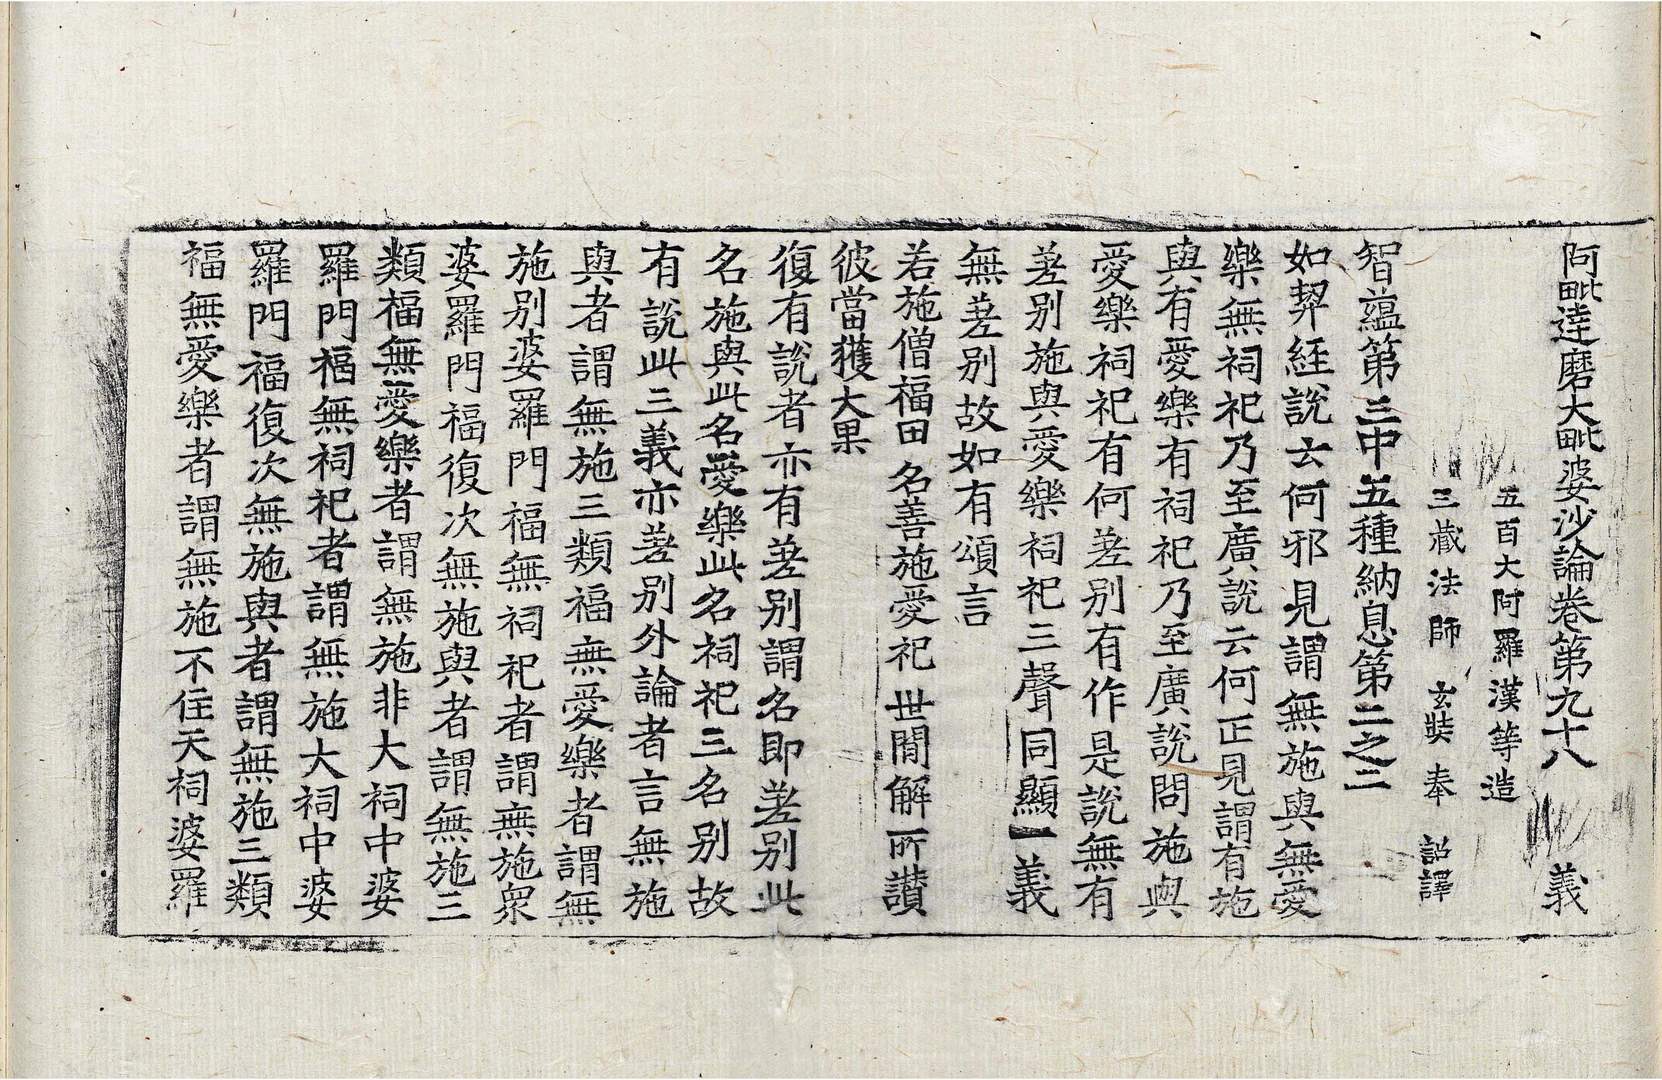 阿毗達磨大毗婆沙論卷第九十八　義
五百大阿羅漢等造
三藏法師　玄奘奉　詔譯
智蘊第三中五種納息第二之二
如契經說云何邪見謂無施與無愛
樂無祠祀乃至廣說云何正見謂有施
與有愛樂有祠祀乃至廣說問施與
愛樂祠祀有何差別有作是說無有
差別施與愛樂祠祀三聲同顯一義
無差別故如有頌言
若施僧福田　名善施愛祀　世閒解所讃
彼當獲大果
復有說者亦有差別謂名即差別此
名施與此名愛樂此名祠祀三名別故
有說此三義亦差別外論者言無施
與者謂無施三類福無愛樂者謂無
施別婆羅門福無祠祀者謂無施衆
婆羅門福復次無施與者謂無施三
類福無愛樂者謂無施非大祠中婆
羅門福無祠祀者謂無施大祠中婆
羅門福復次無施與者謂無施三類
福無愛樂者謂無施不住天祠婆羅